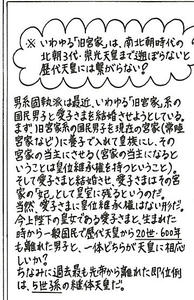 ※ いわゆる「旧宮家」は、南北朝時代の
北朝3代・崇光天皇まで遡らないと
歴代天皇には繋がらない?
男系固執派は最近、いわゆる「旧宮家」系の
国民男子と愛子さまを結婚させようとしている。
まず、旧宮家系の国民男子を現在の宮家(常陸
宮家など)に養子で入れ皇族にし、その
宮家の当主にさせる(宮家の当主になると
いうことは皇位継承権を持つということ)。
そして愛子さまと結婚させ、愛子さまはその宮
家の「妃」として皇室に残るというのだ。
当然、愛子さまに皇位継承権はない形だ。
今上陛下の皇女である愛子さまと、生まれた
時から一般国民で歴代天皇から20世・600年
も離れた男子と、一体どちらが天皇に相応
しいか?
ちなみに過去最も先帝から離れた即位例
は、5世孫の継体天皇だ。